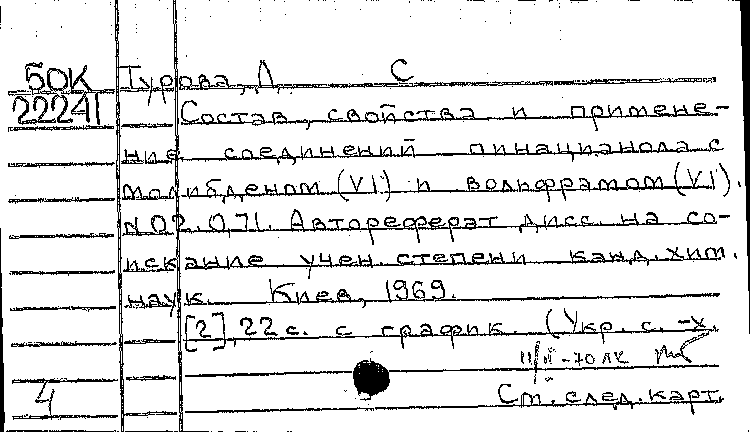 БОК Турова, Л. С
22241 Состав, свойства и примене-
ние соединений пинацианола с
молибденом (VI) и вольфрамом (VI).
N 02.071. Автореферат дисс. на со-
искание учен. степени канд. хим.
наук. Киев, 1969.
[2], 22 с. с график. (Укр. с.-х.
11/II-70 ЛК
4 См. след. карт.